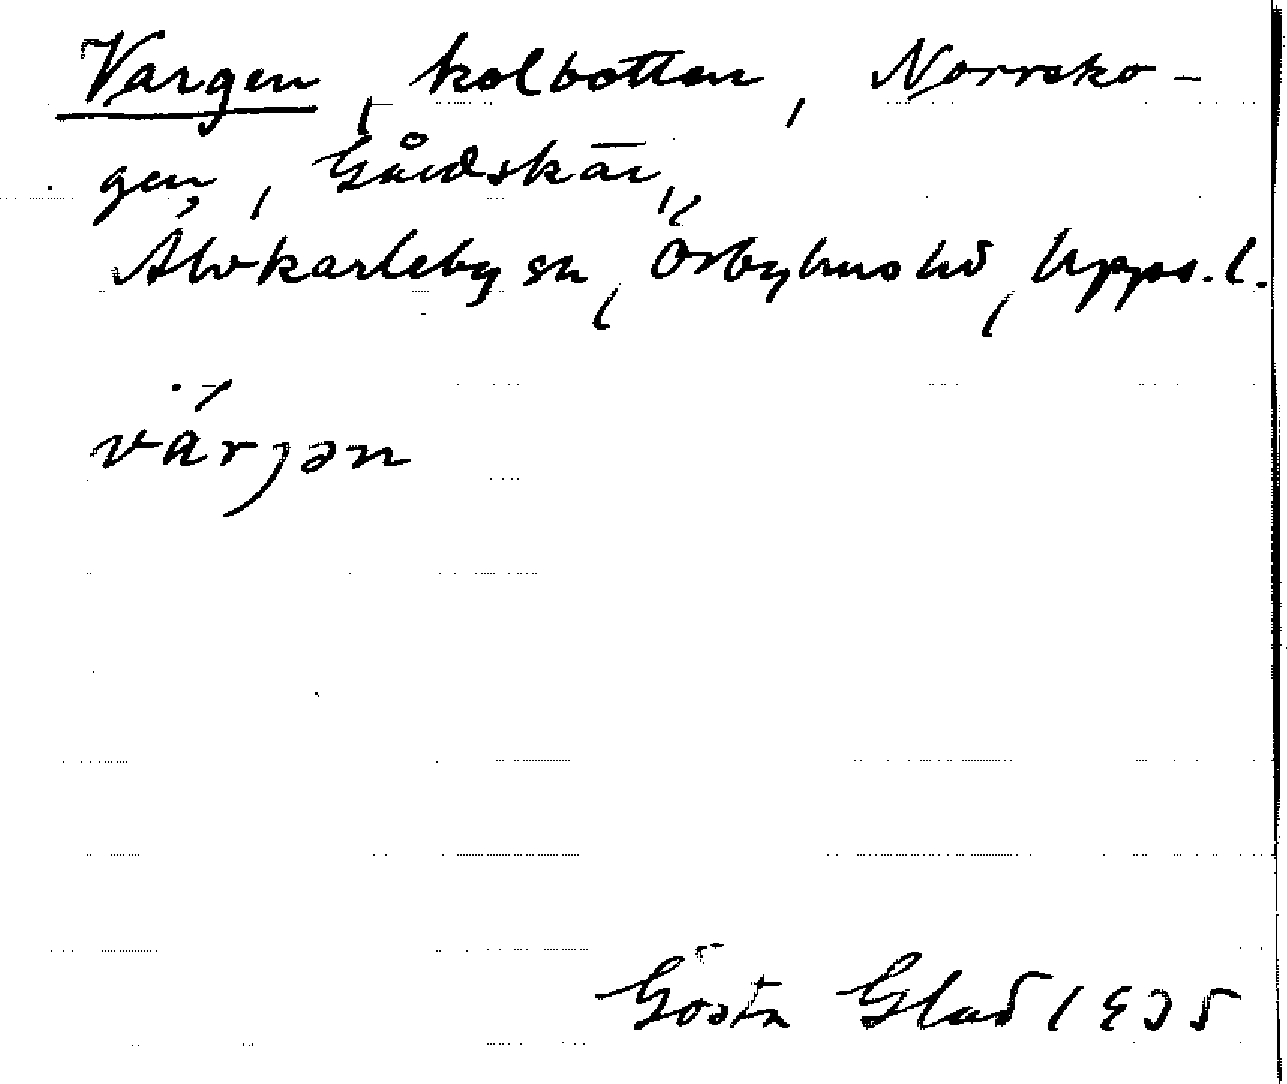 Vargen, kolbotten, Norrsko-
gen, Gårdskär,
Älvkarleby sn, Örbyhus hd, Upps. l.
várjən
Gösta Glad 1935